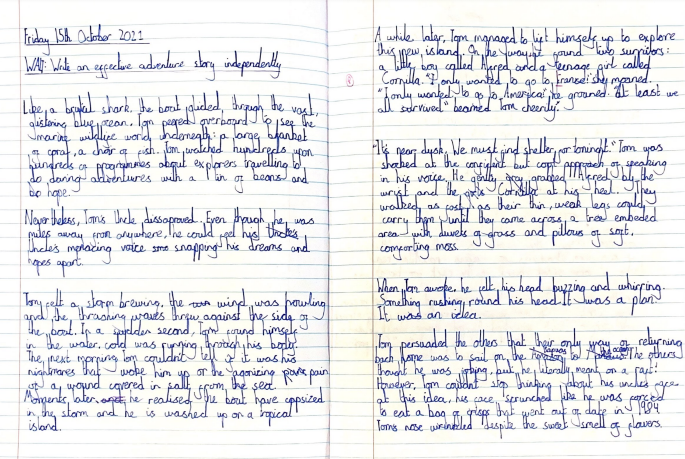 Friday 15th October 2021
WALT: Write an effective adventure story independently
Like a basket shark, the boat glided, through the vast,
glistening blue ocean. Tom peered overboard to see the
marine wildlife world underneath: a large blanket
of coral, a choir of fish. Tom watched hundreds upon
hundreds of programmes about explorers travelling to
do daring adventures with a tin of beans and
be hope.
Nevertheless, Toms Uncle dissaproved. Even though, he was
miles away from anywhere, he could feel his
Uncles menacing voice snapping his dreams and
hopes apart.
Tom felt a storm brewing, the wind was howling
and the thrashing waves threw against the side of
the boat. In a sudden second, Tom found himself
in the water, cold was running through his body.
The next morning Tom couldn't tell if it was his
nightmares that woke him up or the agonizing pain
of a wound covered in salt from the sea.
Moments later he realised, the boat have capsized
in the storm and he is washed up on a tropical
island.
A while later, Tom managed to lift himself up to explore
this new island. On he way he found two survivors:
a little boy called Alfred and a teenage girl called
Cornilla. "I only wanted to go to France!" she moaned.
"I only wanted to go to America!" he groaned. "At least we
all survived" beamed Tom cheerily.
"It's near dusk, We must find shelter for tonight." Tom was
shocked at the confident but soft approach of speaking
in his voice. He gently grabbed Alfred by the
wrist and the girls Cornilla at his heel. They
walked, as fast as their thin, weak legs could
carry them until they came across, a tree embeded
area with duvets of grass and pillows of soft,
comforting moss.
When Tom awoke, he felt his head buzzing and whirring.
Something rushing round his head. It was a plan
It was an idea.
Tom persuaded the others that their only way of returning
back home was to sail on the The others
thought he was joking, but he literally meant on a raft!
However, Tom couldnt stop thinking about his uncles face
at this idea, his face scrunched like he was forced
to eat a bag of crisps that went out of date in 1984
Toms nose wrinkled despite the sweet smell of flowers.